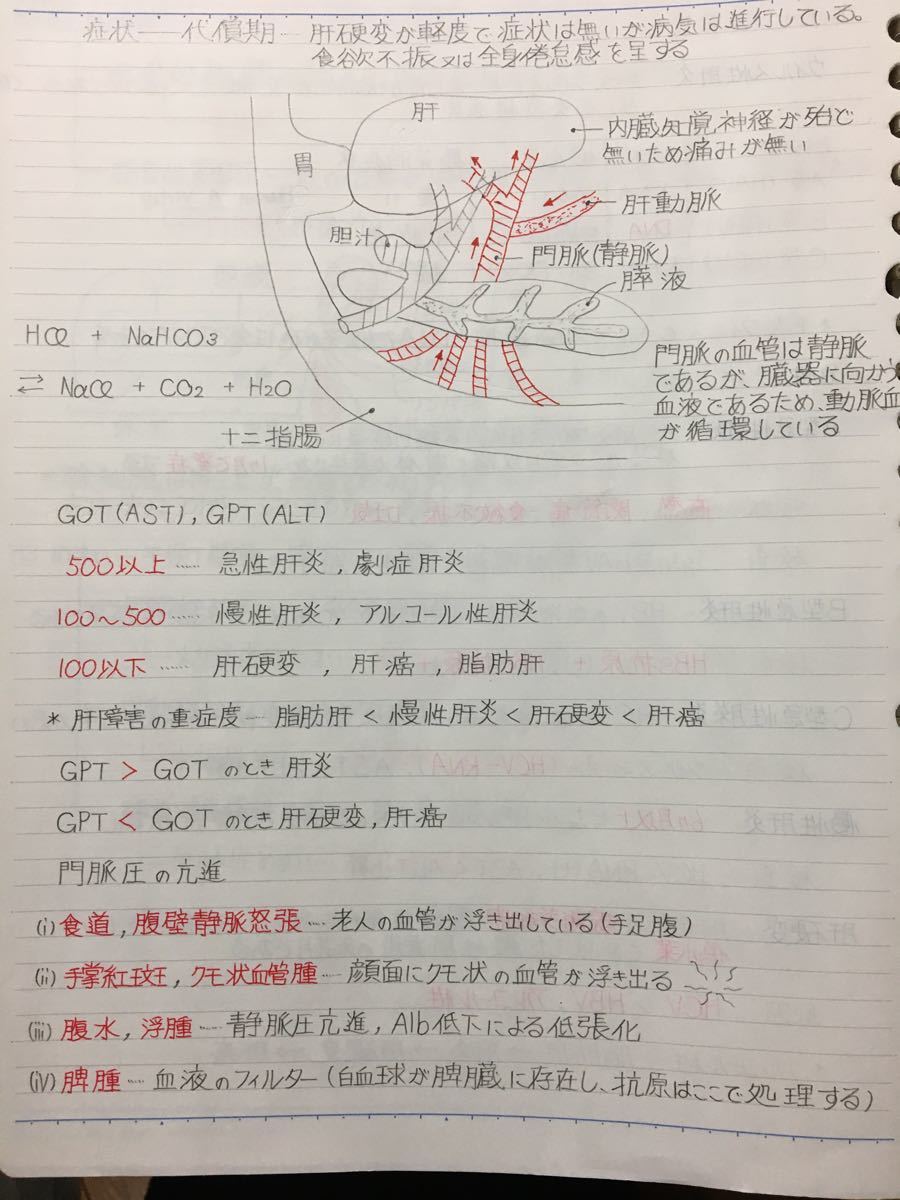 症状――代償期…肝硬変が軽度で症状は無いが病気は進行している。
食欲不振又は全身倦怠感を呈する
肝
胃
内臓知覚神経が殆ど
無いため痛みが無い
肝動脈
胆汁
門脈(静脈)
膵液
HCl + NaHCO3
⇄ NaCl + CO2 + H2O
門脈の血管は静脈
であるが、臓器に向かう
血液であるため、動脈血
が循環している
十二指腸
GOT(AST), GPT(ALT)
500以上 …… 急性肝炎, 劇症肝炎
100～500 …… 慢性肝炎, アルコール性肝炎
100以下 …… 肝硬変, 肝癌, 脂肪肝
* 肝障害の重症度… 脂肪肝 < 慢性肝炎 < 肝硬変 < 肝癌
GPT > GOT のとき 肝炎
GPT < GOT のとき 肝硬変, 肝癌
門脈圧の亢進
(i) 食道, 腹壁静脈怒張…老人の血管が浮き出している(手足腹)
(ii) 手掌紅斑, クモ状血管腫…顔面にクモ状の血管が浮き出る
(iii) 腹水, 浮腫…静脈圧亢進, Alb低下による低張化
(iv) 脾腫…血液のフィルター(白血球が脾臓に存在し、抗原はここで処理する)